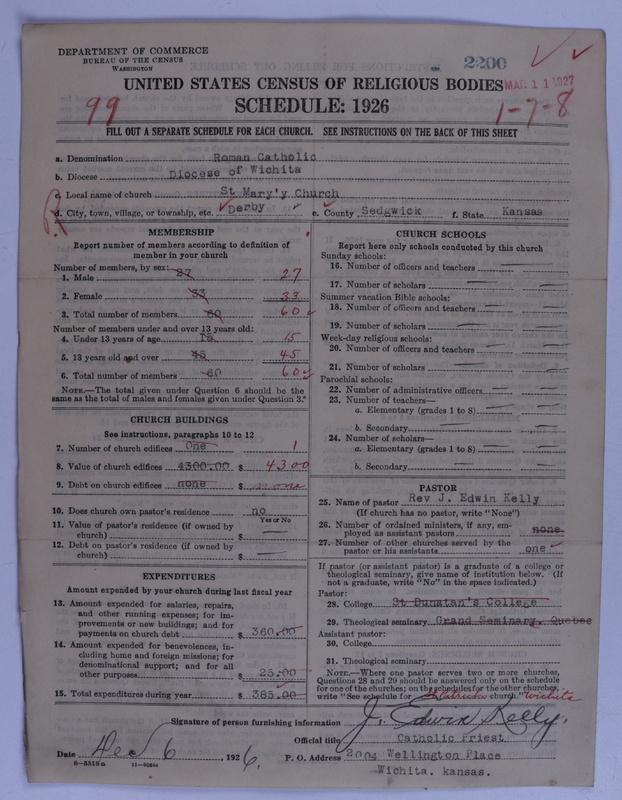 DEPARTMENT OF COMMERCE
BUREAU OF THE CENSUS
WASHINGTON
2200
MAR 11 1927
UNITED STATES CENSUS OF RELIGIOUS BODIES
99
SCHEDULE: 1926
1-7-8
FILL OUT A SEPARATE SCHEDULE FOR EACH CHURCH. SEE INSTRUCTIONS ON THE BACK OF THIS SHEET
a. Denomination Roman Catholic
b. Diocese Diocese of Wichita
c. Local name of church St Mary'y Church
d. City, town, village, or township, etc. Derby e. County Sedgwick f. State Kansas
MEMBERSHIP
Report number of members according to definition of
member in your church
Number of members, by sex:
1. Male 27 27
2. Female 33 33
3. Total number of members 60 60
Number of members under and over 13 years old:
4. Under 13 years of age 15 15
5. 13 years old and over 45 45
6. Total number of members 60 60
NOTE.—The total given under Question 6 should be the
same as the total of males and females given under Question 3.
CHURCH BUILDINGS
See instructions, paragraphs 10 to 12
7. Number of church edifices One 1
8. Value of church edifices 4300.00 $ 4300
9. Debt on church edifices none $ none
10. Does church own pastor's residence no
Yes or No
11. Value of pastor's residence (if owned by
church) $
12. Debt on pastor's residence (if owned by
church) $
EXPENDITURES
Amount expended by your church during last fiscal year
13. Amount expended for salaries, repairs,
and other running expenses; for im-
provements or new buildings; and for
payments on church debt $ 360.00
14. Amount expended for benevolences, in-
cluding home and foreign missions; for
denominational support; and for all
other purposes $ 25.00
15. Total expenditures during year $ 385.00
CHURCH SCHOOLS
Report here only schools conducted by this church
Sunday schools:
16. Number of officers and teachers
17. Number of scholars
Summer vacation Bible schools:
18. Number of officers and teachers
19. Number of scholars
Week-day religious schools:
20. Number of officers and teachers
21. Number of scholars
Parochial schools:
22. Number of administrative officers
23. Number of teachers—
a. Elementary (grades 1 to 8)
b. Secondary
24. Number of scholars—
a. Elementary (grades 1 to 8)
b. Secondary
PASTOR
25. Name of pastor Rev J. Edwin Kelly
(If church has no pastor, write "None")
26. Number of ordained ministers, if any, em-
ployed as assistant pastors none.
27. Number of other churches served by the
pastor or his assistants one
If pastor (or assistant pastor) is a graduate of a college or
theological seminary, give name of institution below. (If
not a graduate, write "No" in the space indicated.)
Pastor:
28. College St Dunstan's College
29. Theological seminary Grand Seminary. Quebec
Assistant pastor:
30. College
31. Theological seminary
NOTE.—Where one pastor serves two or more churches,
Questions 28 and 29 should be answered only on the schedule
for one of the churches; on the schedules for the other churches,
write "See schedule for church." Wichita
Signature of person furnishing information J. Edwin Kelly.
Official title Catholic Priest
Date Dec 6, 1926. P. O. Address 2004 Wellington Place
8-5318a
Wichita. kansas.